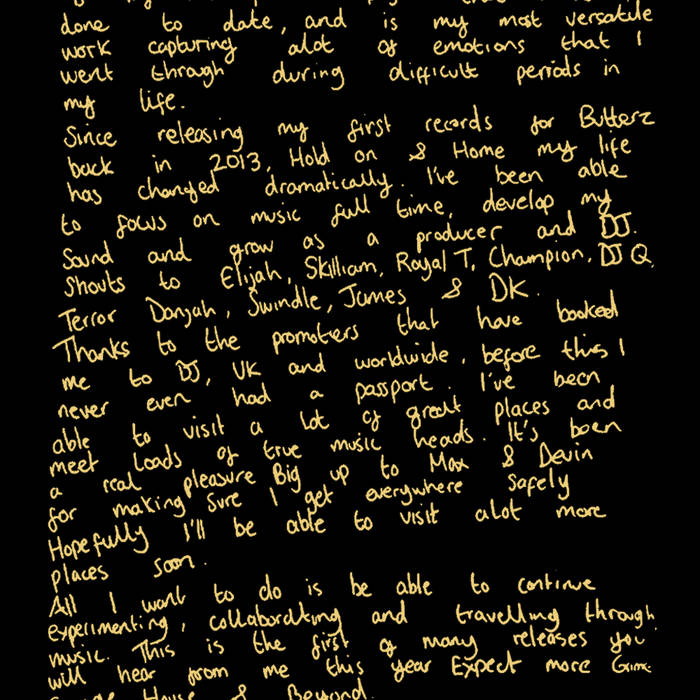 done to date, and is my most versatile
work capturing alot of emotions that I
went through during difficult periods in
my life.
Since releasing my first records for Butterz
back in 2013, Hold on & Home my life
has changed dramatically. I've been able
to focus on music full time, develop my
Sound and grow as a producer and DJ.
Shouts to Elijah, Skilliam, Royal T, Champion, DJ Q,
Terror Danjah, Swindle, James & DK.
Thanks to the promoters that have booked
me to DJ, UK and worldwide, before this I
never even had a passport. I've been
able to visit a lot of great places and
meet loads of true music heads. It's been
a real pleasure Big up to Max & Devin
for making sure I get everywhere safely
Hopefully I'll be able to visit alot more
places soon.
All I want to do is be able to continue
experimenting, collaborating and travelling through
music. This is the first of many releases you
will hear from me this year Expect more Grime
House & Beyond.